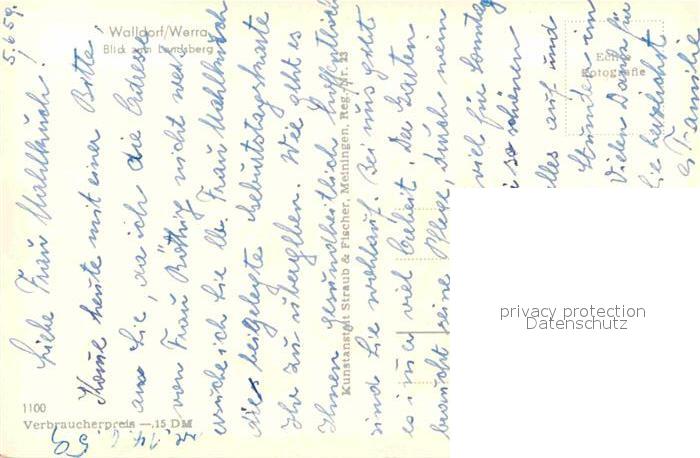 Walldorf/Werra
Blick zum Landsberg
Echte
Fotografie
5.6.59.
Liebe Frau Mahlkuch!
Komme heute mit einer Bitte
an Sie, da ich die Adresse
von Frau Röthig nicht weiß
ersuche ich Sie lb. Frau Mahlkuch
die beigelegte Geburtstagskarte
Ihr zu übergeben. Wie geht es
Ihnen gesundheitlich hoffentlich
sind Sie wohlauf. Bei uns geht
es immer viel Arbeit, der Garten
braucht seine Pflege, durch mein
viel für Sonntag
so schönen
alles auf und
Stunden im
Vielen Dank für
Sie herzlichst
Familie
Kunstanstalt Straub & Fischer, Meiningen, Reg.-Nr. 23
1100
Verbraucherpreis —,15 DM
privacy protection
Datenschutz